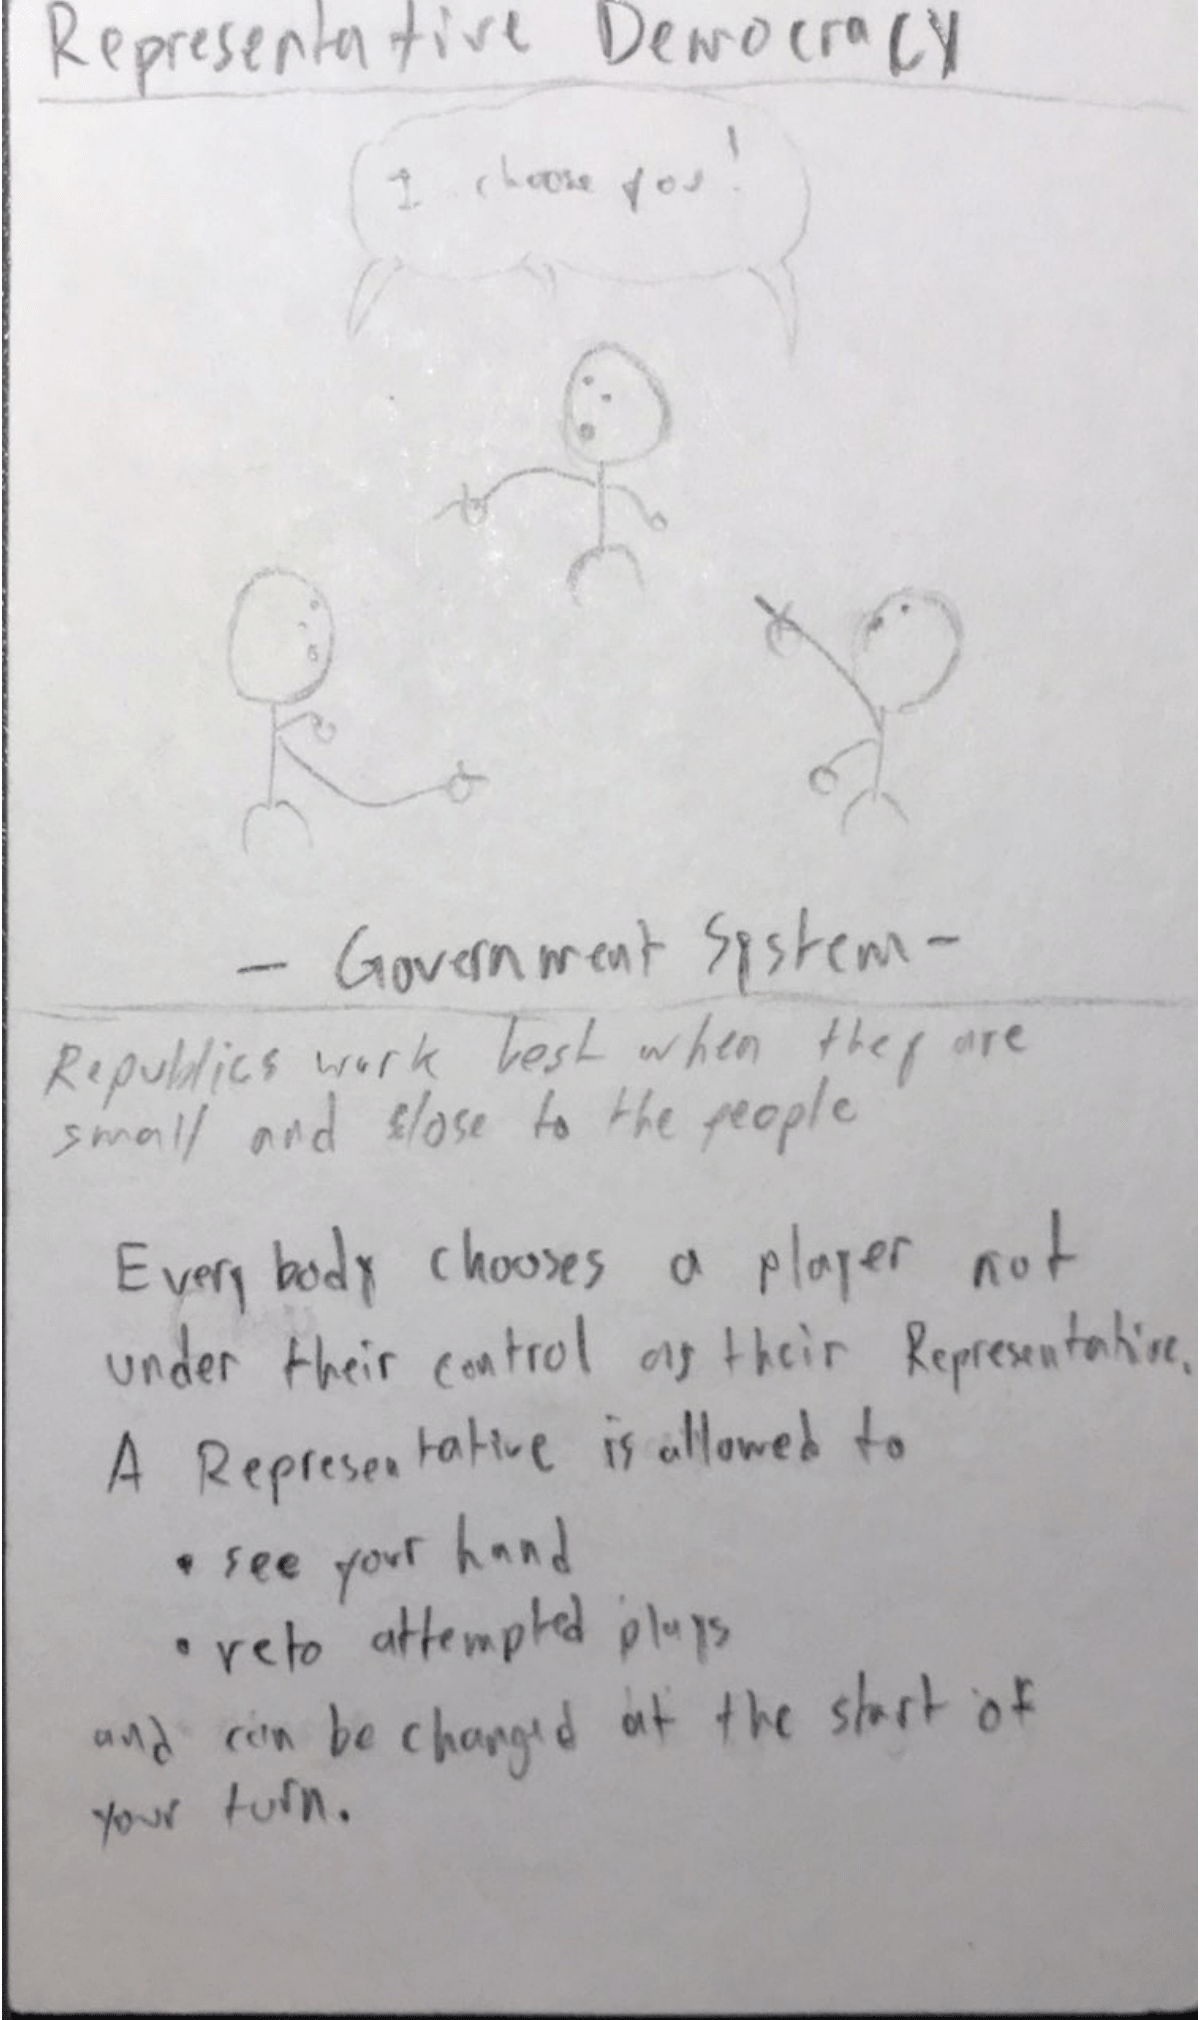 Representative Democracy
I choose you!
- Government System -
Republics work best when they are
small and close to the people
Everybody chooses a player not
under their control as their Representative.
A Representative is allowed to
• see your hand
• veto attempted plays
and can be changed at the start of
your turn.